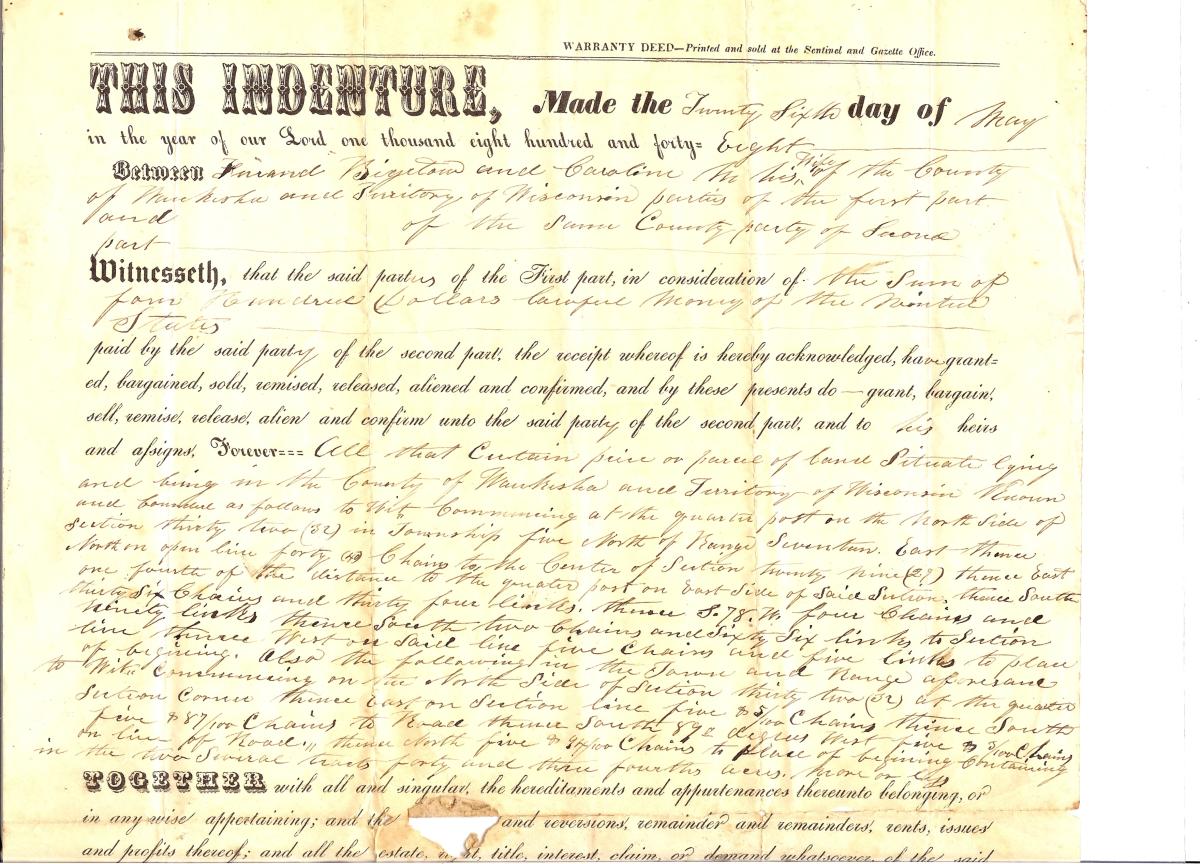 WARRANTY DEED—Printed and sold at the Sentinel and Gazette Office.
THIS INDENTURE, Made the Twenty Sixth day of May
in the year of our Lord one thousand eight hundred and forty= Eight
Between Bigelow and Caroline M his Wife of the County
of Waukisha and Territory of Wisconsin parties of the first part
and of the Same County party of Second
part
Witnesseth, that the said parties of the First part, in consideration of the Sum of
four Hundred Dollars lawful Money of the United
States
paid by the said party of the second part, the receipt whereof is hereby acknowledged, have grant=
ed, bargained, sold, remised, released, aliened and confirmed, and by these presents do — grant, bargain,
sell, remise, release, alien and confirm unto the said party of the second part, and to his heirs
and assigns, Forever=== All that Certain peice or parcel of land Situate lying
and being in the County of Waukisha and Territory of Wisconsin Known
and as follows to Wit Commencing at the quarter post on the North Side of
Section thirty two (32) in Township five North of Range Seventeen. East thence
North on open line forty (40) Chains to the Center of Section twenty nine (29) thence East
one fourth of the distance to the quarter post on East Side of Said Section. thence South
thirty Six Chains and thirty four links. thence S. 78. W. four Chains and
ninety links thence South two Chains and Sixty Six links to Section
line thence West on Said line five Chains and five links to place
of begining. Also the following in the Town and Range aforesaid
to Wit. Commencing on the North Side of Section thirty two (32) at the quarter
Section Corner thence East on Section line five & 5/100 Chains thence South
five & 87/100 Chains to Road thence South 89 degrees West five & Chains
on line of Road,, thence North five & 94/100 Chains to place of begining Containing
in the two Several tracts forty and three fourths acres. More or less
TOGETHER with all and singular, the hereditaments and appurtenances thereunto belonging, or
in any wise appertaining; and the and reversions, remainder and remainders, rents, issues
and profits thereof; and all the estate, right, title, interest, claim, or demand whatsoever, of the said